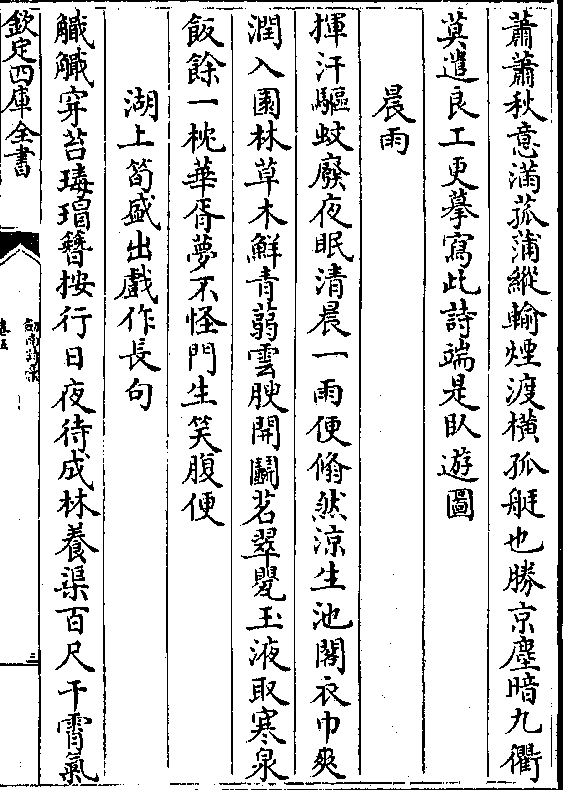 蕭蕭秋意滿菰蒲縱輸煙渡橫孤艇也勝京塵暗九衢
莫遣良工更摹寫此詩端是臥遊圖
晨雨
揮汗驅蚊廢夜眠清晨一雨便翛然涼生池閣衣巾爽
潤入園林草木鮮青蒻雲腴開鬭茗翠甖玉液取寒泉
飯餘一枕華胥夢不怪門生笑腹便
湖上筍盛出戲作長句
觿觿穿苔瑇瑁簪按行日夜待成林養渠百尺干霄氣
欽定四庫全書
劍南詩藁
卷五
三